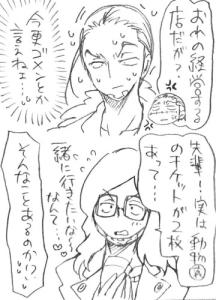 おれの経営する
店だがっ
今更ゴメンとか
言えねェ…
先輩!実は動物園
のチケットが2枚
あって…
一緒に行きたいな〜
なんて…♡
そんなことあるのか!?